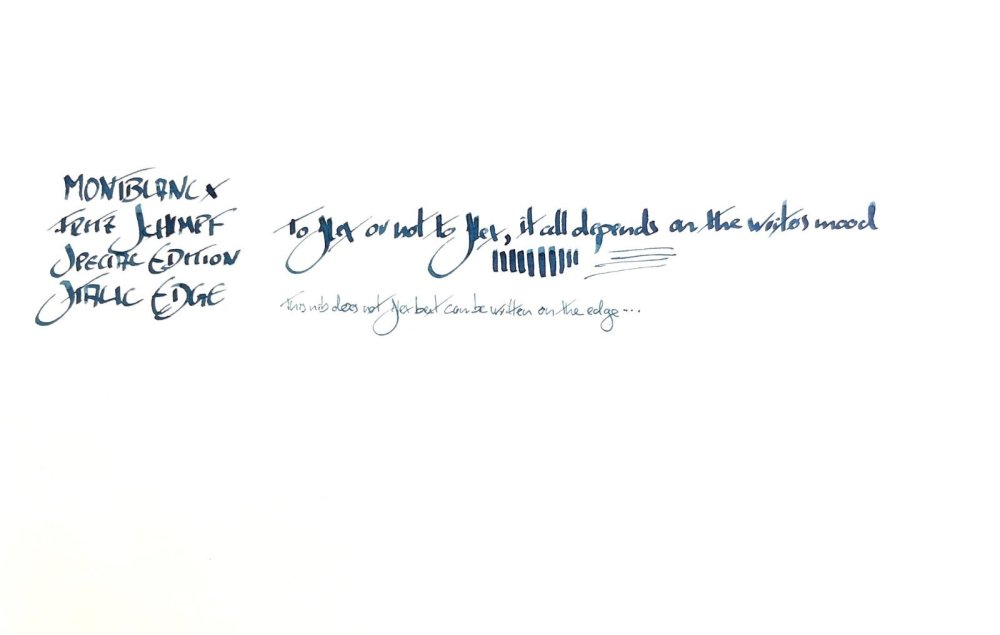 MONTBLANC X
FRITZ SCHIMPF
SPECIAL EDITION
ITALIC EDGE
To flex or not to flex, it all depends on the writers mood
This nib does not flex but can be written on the edge...